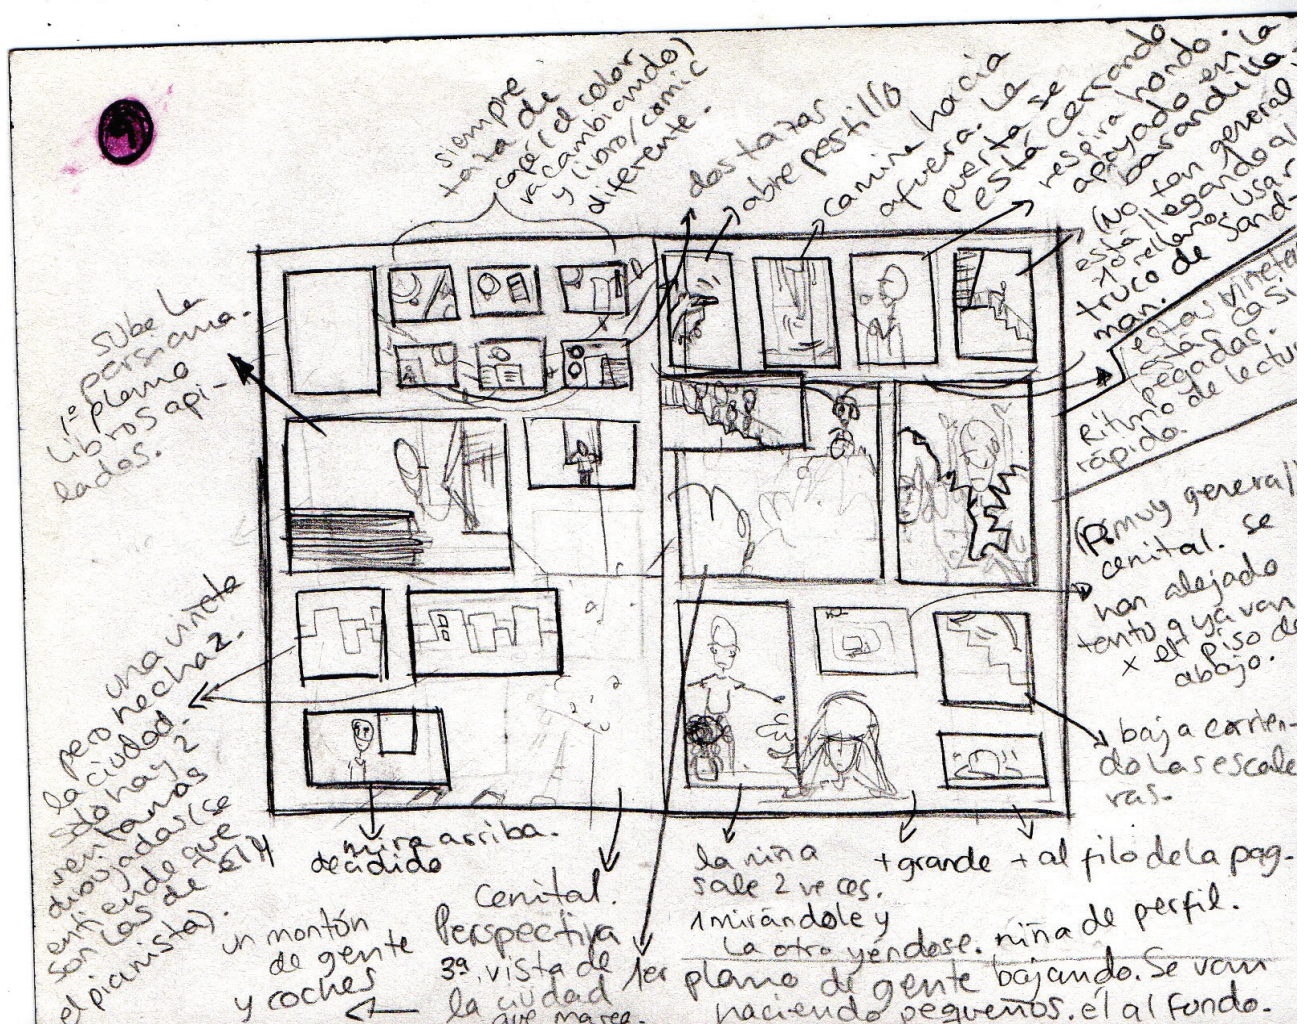 siempre
taza de
café (el color
va cambiando)
y libro/comic
diferente.
dos tazas
abre pestillo
camina hacia
afuera. La
puerta se
está cerrando
respira hondo.
apoyado en la
barandilla.
(No tan general,
está llegando al
rellano, usar
truco de Sand-
man.
estas viñetas
están casi
pegadas.
Ritmo de lectur
rápido.
sube la
persiana.
1º plano
libros api-
lados.
(P. muy general)
cenital. se
han alejado
tanto q ya van
x el piso de
abajo.
una viñeta
pero hecha 2.
la ciudad.
sólo hay 2
ventanas
dibujadas (se
entiende que
son las de él y
el pianista).
baja corrien-
do las escale
ras.
mira arriba.
decidido
un montón
de gente
y coches
Cenital.
Perspectiva
3ª, vista de
la ciudad
que marea.
la niña
sale 2 veces.
1 mirándole y
la otra yéndose.
+ grande
+ al filo de la pag.
niña de perfil.
1er plano de gente bajando. Se van
haciendo pequeños. él al fondo.